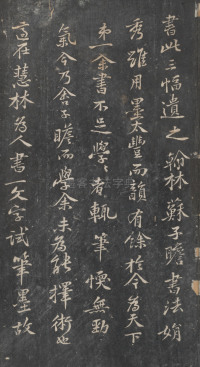 書此三幅遺之翰林蘇子瞻書法娟
秀雖用墨太豐而韻有餘於今為天下
第一余書不足學學者輒筆愞無勁
氣今乃舍子瞻而學余未為能擇術也
適在慧林為人書一文字試筆墨故